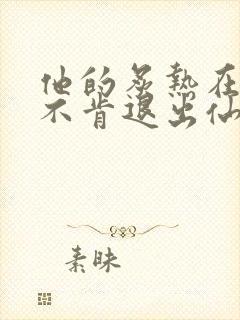 他的炙热在
不肯退出仙
素昧